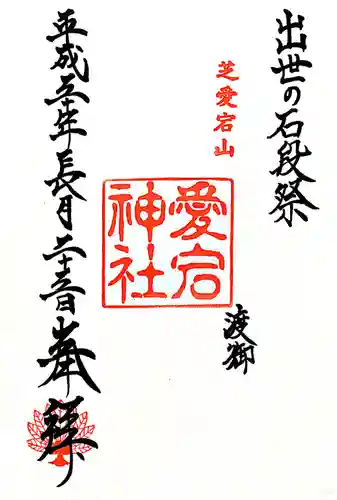 出世の石段祭
芝愛宕山
愛宕神社
渡御
平成三十年長月二十三日奉拝